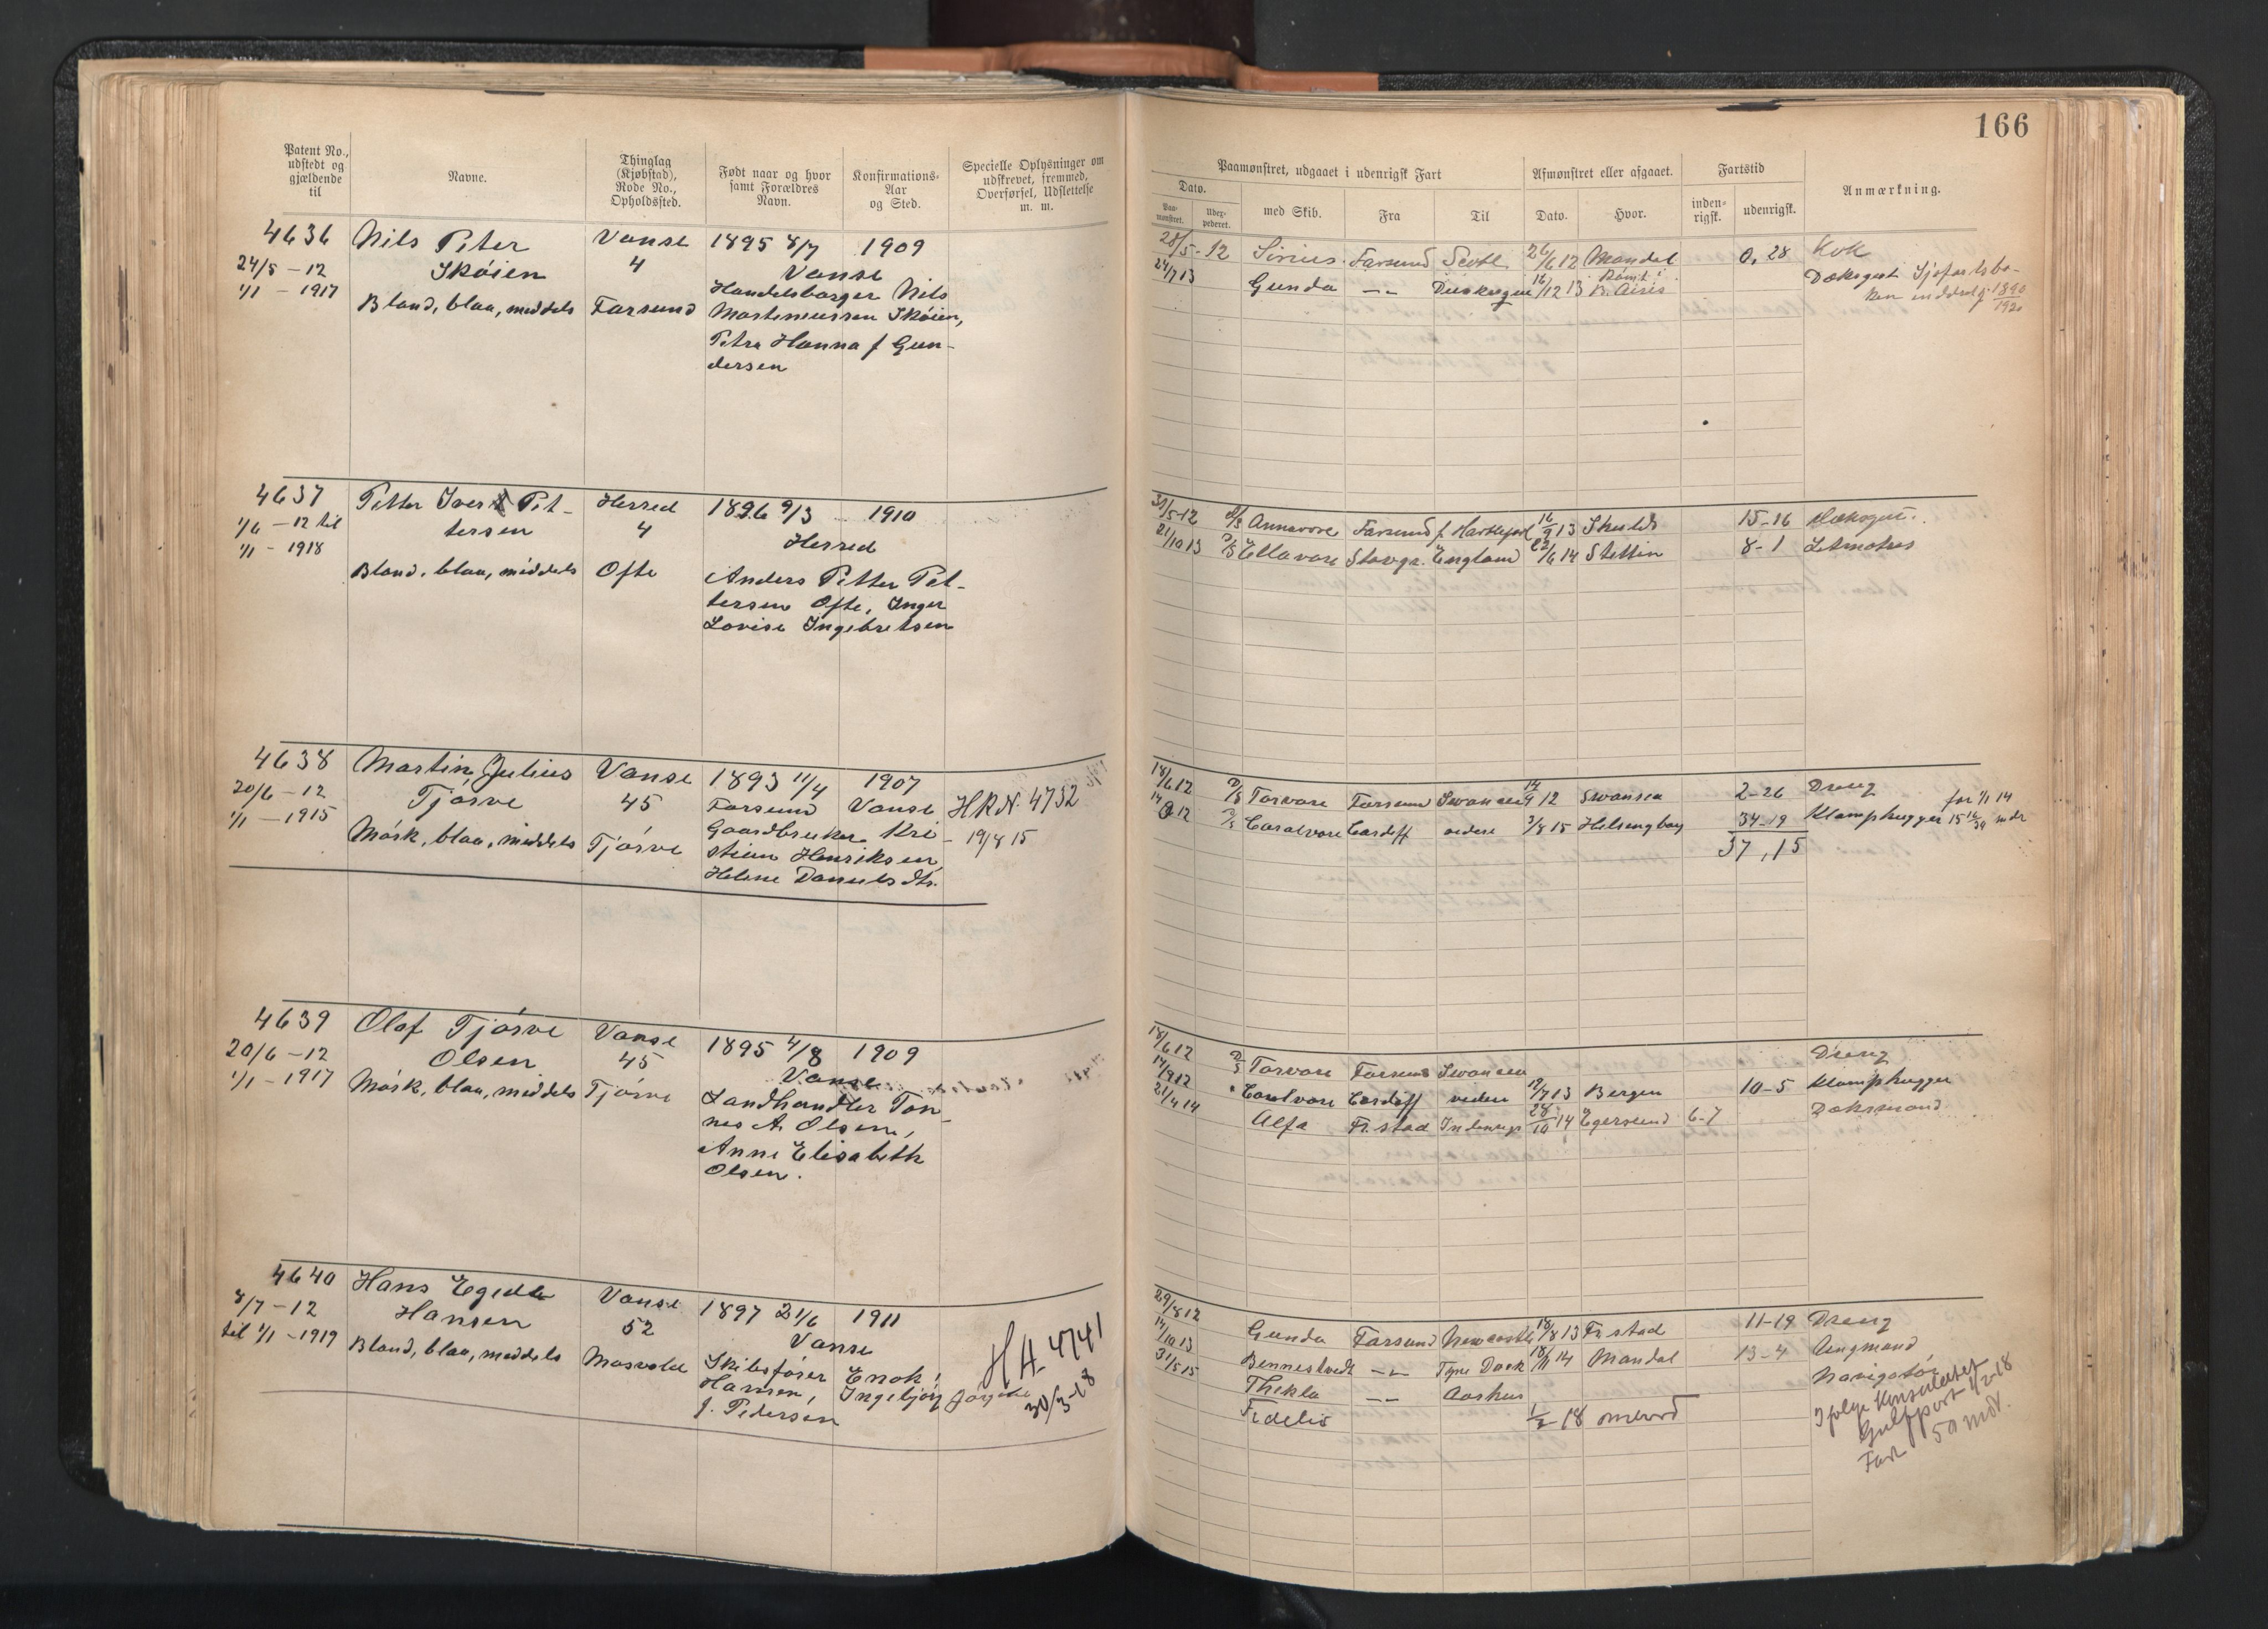 166
Patent No., udstedt og gjældende til
Navne.
Thinglag (Kjøbstad), Rode No., Opholdssted.
Født naar og hvor samt Forældres Navn.
Konfirmations-Aar og Sted.
Specielle Oplysninger om udskrevet, fremmed, Overførsel, Udslettelse m. m.
Paamønstret, udgaaet i udenrigsk Fart
Afmønstret eller afgaaet.
Fartstid
Anmærkning.
Dato.
Paa-mønstret.
Udex-pederet.
med Skib.
Fra
Til
Dato.
Hvor.
inden-rigsk.
udenrigsk.
4636 Nils Peter Vanse 1895 8/7 1909
24/5 - 12 Skøien 4 Vanse
1/1 - 1917 Handelsborger Nils
Blond, blaa, middels Farsund Marteniussen Skøien,
Petra Hanna f Gun-
dersen
28/5-12 Sirius Farsund Scotl 26/6 12 Mandal 0, 28 Kok
24/7 13 Gunda -"- 16/12 13 B. Aires
4637 Petter Iver Pet- Herred 1896 9/3 1910
1/6 - 12 til tersen 4 Herred
1/1 - 1918
Blond, blaa, middels Ofte Anders Petter Pet-
tersen Ofte, Inger
Lovise Ingebretsen
30/5-12 D/S Annavore Farsund 16/9 13 15-16
21/10 13 D/S Ellavore Stavgr. England 22/6 14 Stettin 8-1 Letmatros
4638 Martin Julius Vanse 1893 11/4 1907
20/6 - 12 Tjørve 45 Farsund Vanse HRN. 4732
1/1 - 1915 Gaardbruker Kri-
Mørk, blaa, middels Tjørve stian Henriksen, 19/8 15
Helene Danielsdtr.
18/6 12 D/S Torvore Farsund Swansea 14/9 12 Swansea 2-26 Dreng
D/S Coralvore Cardiff 3/8 15 Helsingborg 34-19 Klamphugger
37, 15
4639 Olaf Tjørve Vanse 1895 4/8 1909
20/6 - 12 Olsen 45 Vanse
1/1 - 1917 Mørk, blaa, middels Tjørve Landhandler Tøn-
nes A. Olsen,
Anne Elisabeth
Olsen.
18/6 12 D/S Torvore Farsund Swansea Dreng
14/9 12 " Coralvore Cardiff videre 19/7 13 Bergen 10-5 Klamphugger
21/4 14 Alfa Fr.stad 28/10 14 Egersund 6-7 Dæksmand
4640 Hans Egede Vanse 1897 21/6 1911
8/7 - 12 Hansen 52 Vanse
til 1/1 - 1919 Blond, blaa, middels Mosvold Skibsfører Enok
Hansen, Ingebjørg
J. Pedersen
H H. 4741
30/3-18
29/8 12 Gunda Farsund Newcastle 18/8 13 Fr.stad 11-19 Dreng
14/10 13 Bennestvedt -"- Tyne Dock 18/11 14 Mandal 13-4 Ungmand
31/5 15 Thekla -"- Aarhus
Fidelis 1/2 18 ombord
Ifølge Konsulatet
Gulfport 1/2-18
Fart 50 mdr.